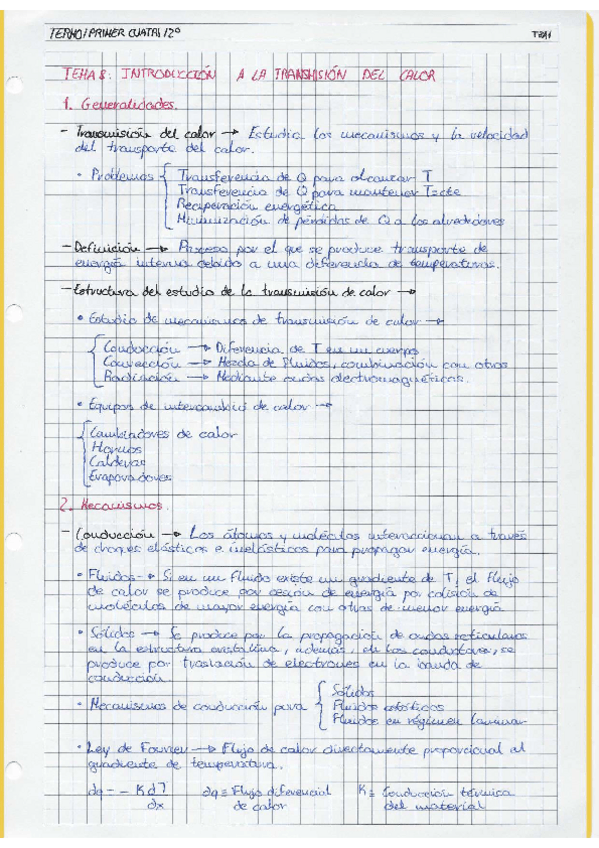 TERMO/PRIMER CUATRI/2º
TEMA 8: INTRODUCCIÓN A LA TRANSMISIÓN DEL CALOR
1. Generalidades.
- Transmisión del calor → Estudia los mecanismos y la velocidad
del transporte del calor.
• Problemas { Transferencia de Q para alcanzar T
Transferencia de Q para mantener T=cte
Recuperación energética
Minimización de pérdidas de Q a los alrededores
- Definición → Proceso por el que se produce transporte de
energía interna debido a una diferencia de temperaturas.
- Estructura del estudio de la transmisión de calor →
• Estudio de mecanismos de transmisión de calor →
{ Conducción → Diferencia de T en un cuerpo
Convección → Mezcla de fluidos, combinación con otros
Radiación → Mediante ondas electromagnéticas.
• Equipos de intercambio de calor →
{ Cambiadores de calor
Hornos
Calderas
Evaporadores
2. Mecanismos.
- Conducción → Los átomos y moléculas interaccionan a través
de choques elásticos e inelásticos para propagar energía.
• Fluidos → Si en un fluido existe un gradiente de T, el flujo
de calor se produce por cesión de energía por colisión de
moléculas de mayor energía con otras de menor energía
• Sólidos → Se produce por la propagación de ondas reticulares
en la estructura cristalina, además, en los conductores, se
produce por traslación de electrones en la banda de
conducción.
• Mecanismos de conducción para { Sólidos
Fluidos estáticos
Fluidos en régimen laminar
• Ley de Fourier → Flujo de calor directamente proporcional al
gradiente de temperatura.
dq = - K dT/dx dq ≡ Flujo diferencial de calor K ≡ Conducción térmica del material